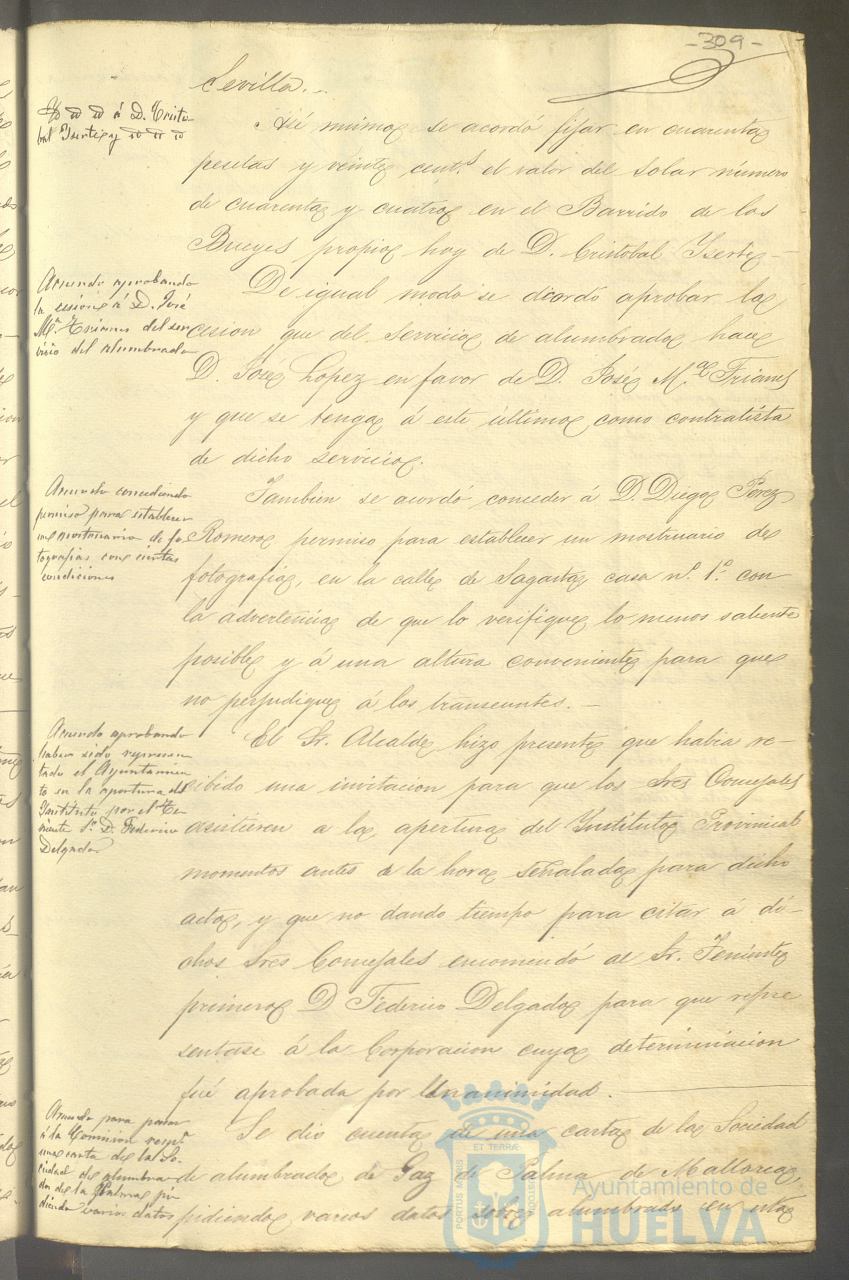 -309-
Sevilla..
Id id id á D. Cristo-
bal Yserte y id id id
Así mismo se acordó fijar en cuarenta
pesetas y veinte cent.s el valor del solar número
de cuarenta y cuatro en el Barrido de los
Bueyes propio hoy de D. Cristobal Yserte.-
Acuerdo aprobando
la cesion á D. José
M.a Trianes del ser
vicio del alumbrado
De igual modo se acordó aprobar la
cesion que del servicio de alumbrado hace
D. José Lopez en favor de D. José M.a Trianes
y que se tenga á este último como contratista
de dicho servicio.
Acuerdo concediendo
permiso para establecer
un mostruario de fo
tografias con ciertas
condiciones
Tambien se acordó conceder á D. Diego Pérez
Romero permiso para establecer un mostruario de
fotografia, en la calle de Sagasta casa n.o 1.o con
la advertencia de que lo verifique lo menos saliente
posible y á una altura conveniente para que
no perjudique á los transeuntes.-
Acuerdo aprobando
haber sido represen
tado el Ayuntamien
to en la apertura del
Instituto por el Te-
niente 1.o D. Federico
Delgado
El Sr. Alcalde hizo presente que habia re-
cibido una invitacion para que los Sres Concejales
asistieren a la apertura del Instituto Provincial
momentos antes de la hora señalada para dicho
acto, y que no dando tiempo para citar á di-
chos Sres Concejales encomendó al Sr. Teniente
primero D Federico Delgado para que repre
sentase á la Corporacion cuya determinacion
fué aprobada por Unanimidad.
Acuerdo para pasar
á la Comision resp.a
una carta de la So-
ciedad de alumbra
do de la Palma pi-
diendo varios datos
Se dio cuenta de una carta de la Sociedad
de alumbrado de Gaz de Palma de Mallorca,
pidiendo varios datos sobre alumbrado en esta
PORTUS MARIS ET TERRÆ CUSTODIA
Ayuntamiento de
HUELVA